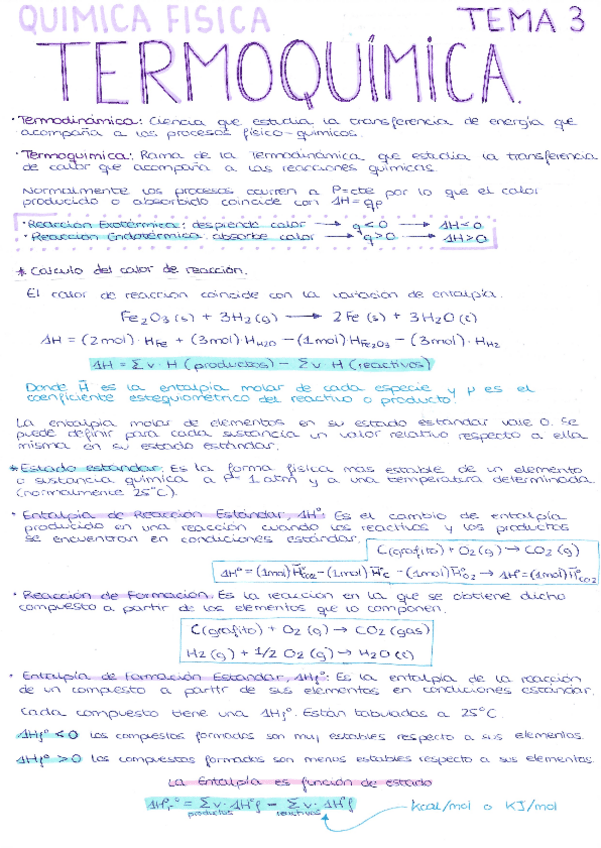 QUIMICA FISICA TEMA 3
TERMOQUÍMICA.
· Termodinámica: Ciencia que estudia la transferencia de energía que
acompaña a los procesos físico-químicos.
· Termoquímica: Rama de la Termodinámica que estudia la transferencia
de calor que acompaña a las reacciones químicas.
Normalmente los procesos ocurren a P=cte por lo que el calor
producido o absorbido coincide con ΔH=qp
· Reacción Exotérmica: despiende calor → q<0 → ΔH<0
· Reacción Endotérmica: absorbe calor → q>0 → ΔH>0
* Calculo del calor de reacción.
El calor de reacción coincide con la variación de entalpía.
Fe2O3 (s) + 3H2 (g) → 2Fe (s) + 3H2O (l)
ΔH = (2mol)·HFe + (3mol)·HH2O − (1mol)·HFe2O3 − (3mol)·HH2
ΔH = Σν·H (productos) − Σν·H (reactivos)
Donde H̄ es la entalpía molar de cada especie y μ es el
coeficiente estequiométrico del reactivo o producto!
La entalpía molar de elementos en su estado estándar vale 0. Se
puede definir para cada sustancia un valor relativo respecto a ella
misma en su estado estándar.
* Estado estándar: Es la forma física mas estable de un elemento
o sustancia química a P= 1 atm y a una temperatura determinada
(normalmente 25°C).
· Entalpía de Reacción Estándar, ΔH°: Es el cambio de entalpía
producido en una reacción cuando los reactivos y los productos
se encuentran en condiciones estándar.
C(grafito) + O2 (g) → CO2 (g)
ΔH° = (1mol)H̄°CO2 − (1mol)H̄°C − (1mol)H̄°O2 → ΔH° = (1mol)H̄°CO2
· Reacción de Formación: Es la reacción en la que se obtiene dicho
compuesto a partir de los elementos que lo componen.
C(grafito) + O2 (g) → CO2 (gas)
H2 (g) + 1/2 O2 (g) → H2O (l)
· Entalpía de Formación Estándar, ΔHf°: Es la entalpía de la reacción
de un compuesto a partir de sus elementos en condiciones estándar.
Cada compuesto tiene una ΔHf°. Están tabuladas a 25°C.
ΔHf° < 0 los compuestos formados son muy estables respecto a sus elementos.
ΔHf° > 0 los compuestos formados son menos estables respecto a sus elementos.
La Entalpía es función de estado
ΔHr° = Σν·ΔH°f − Σν·ΔH°f kcal/mol o KJ/mol
productos reactivos